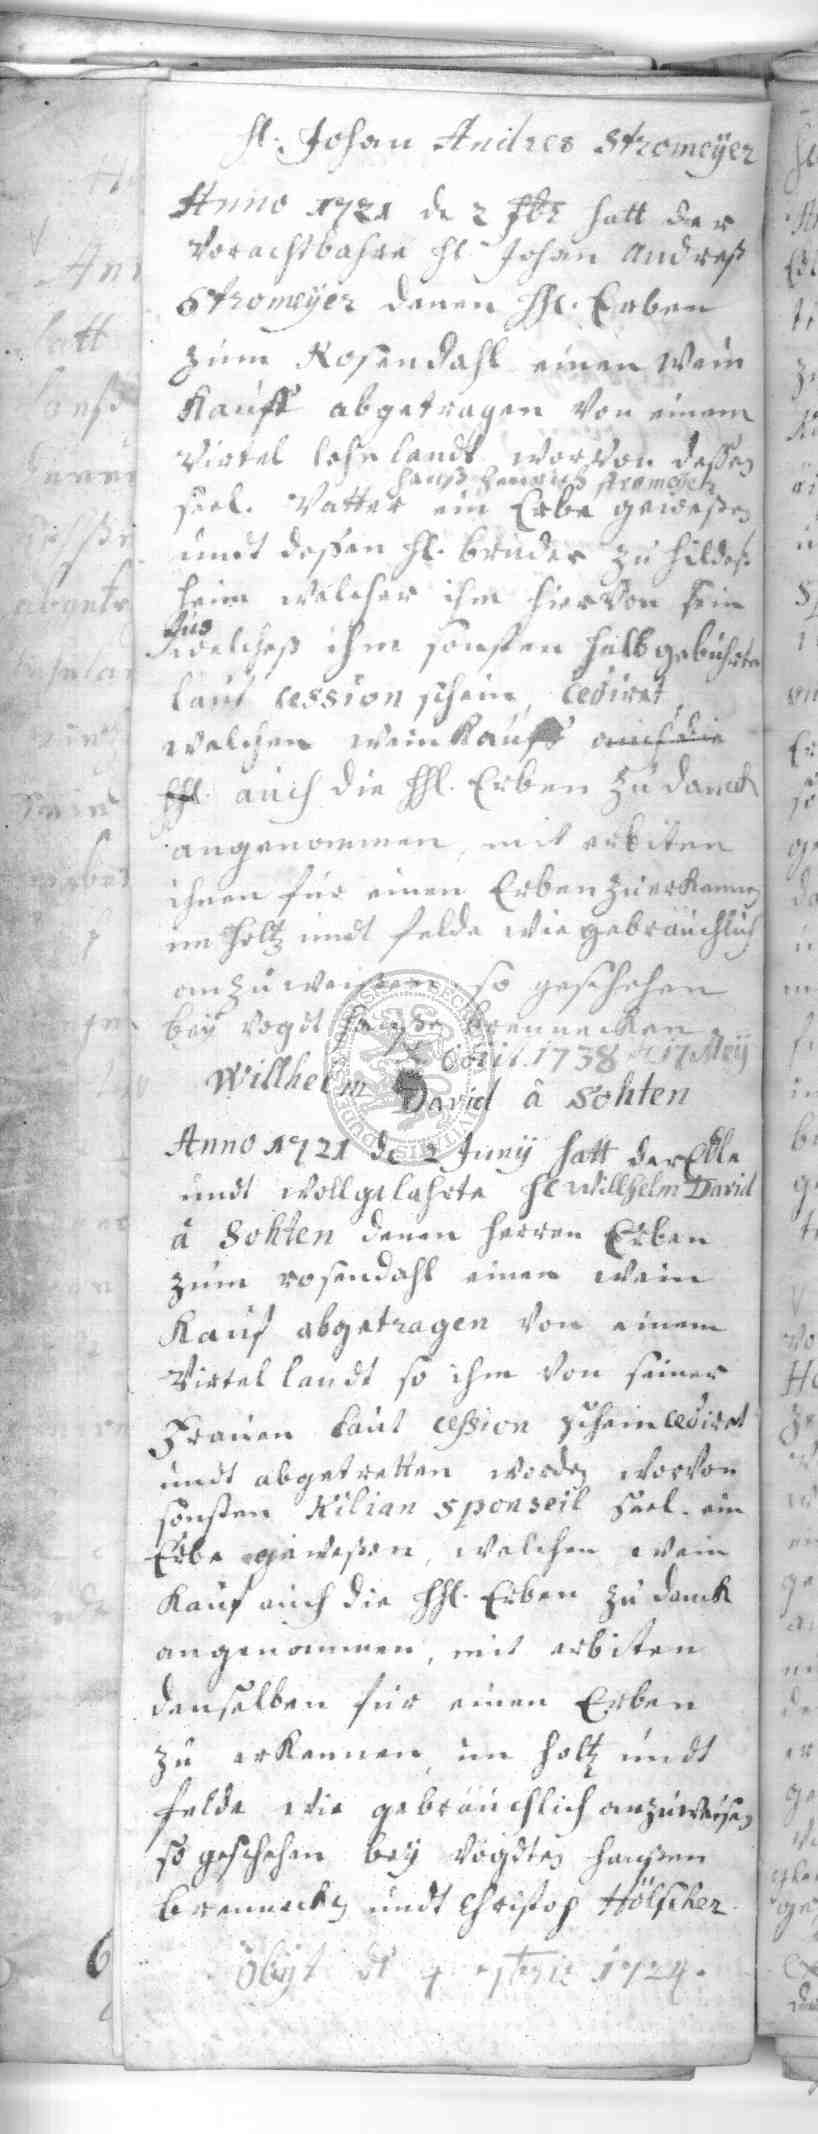 H. Johan Andres Stromeÿer
Anno 1721 de 2 7br hatt der
Vorachtbahre H. Johan Andreß
Stromeÿer denen HH. Erben
zum Rosendahl einen Wein
Kauff abgetragen von einem
Virtel lehnlandt worvon dessen
Hanß Henrich Stromeÿer
seel. Vatter ein Erbe geweßen
undt dessen H. bruder zu Hildeß-
heim welcher ihm hiervon sein
Jus
welcheß ihm sonsten halb gebührte
laut cession schein, cediret,
welchen weinKauff auch die
HH. auch die HH. Erben zu danck
angenommen, mit erbiten
ihnen für einen Erben zuerkennen
im Holtz undt felde wie gebräuchlich
anzuweißen. so geschehen
beÿ vogdt Hanßen brennecken
Obiit. 1738 d 17 Meÿ
Willhelm David â Sohten
Anno 1721 de 2 Junÿ hatt der Edle
undt wollgelahrte H. Willhelm David
â Sohten denen herren Erben
zum rosendahl einen wein
Kauf abgetragen von einem
Virtel landt so ihm von seiner
Frauen laut cession schein cediret
undt abgetretten worden worvon
sonsten Kilian Sponseil seel. ein
Erbe geweßen, welchen wein
Kauf auch die HH. Erben zu danck
angenommen, mit erbiten
denselben für einen Erben
zu erkennen, im holtz undt
felde wie gebräuchlich anzuweisen
so geschehen beÿ vogdten hanßen
brennecken undt Christop Hölscher
Obÿt d 4 1724.
6